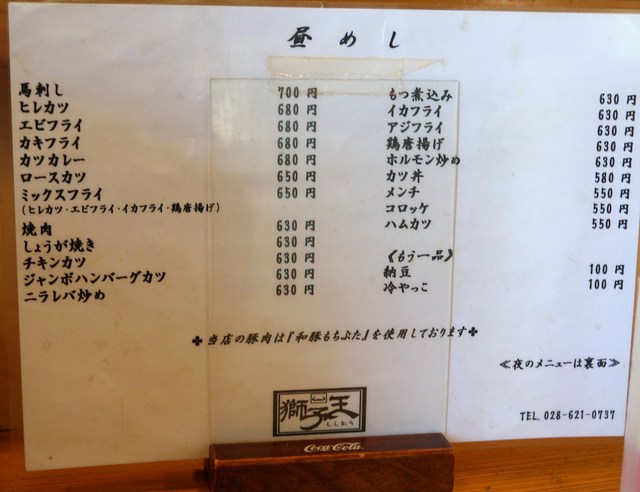 昼めし
馬刺し 700円
ヒレカツ 680円
エビフライ 680円
カキフライ 680円
カツカレー 680円
ロースカツ 650円
ミックスフライ 650円
(ヒレカツ・エビフライ・イカフライ・鶏唐揚げ)
焼肉 630円
しょうが焼き 630円
チキンカツ 630円
ジャンボハンバーグカツ 630円
ニラレバ炒め 630円
もつ煮込み 630円
イカフライ 630円
アジフライ 630円
鶏唐揚げ 630円
ホルモン炒め 630円
カツ丼 580円
メンチ 550円
コロッケ 550円
ハムカツ 550円
《もう一品》
納豆 100円
冷やっこ 100円
✤当店の豚肉は『和豚もちぶた』を使用しております✤
≪夜のメニューは裏面≫
獅子王
ししおう
TEL. 028-621-0737
Coca-Cola